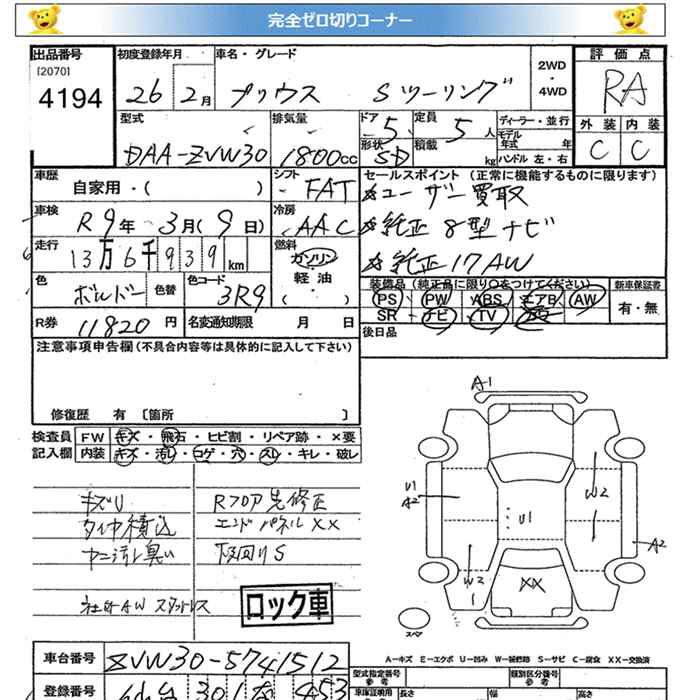 完全ゼロ切りコーナー
出品番号
[2070]
4194
初度登録年月
26 2月
車名・グレード
プリウス Sツーリング
2WD
・
4WD
評価点
RA
外装 内装
C C
型式
DAA-ZVW30
排気量
1800cc
ドア 5
形状 5D
定員 5人
積載 kg
ディーラー・並行
モデル年式 年
ハンドル 左・右
車歴
自家用・( )
シフト
FAT
車検
R9年 3月(9日)
冷房
AAC
走行
13万6千939km
燃料
ガソリン
軽油
( )
色
ボルドー
色替
色コード
3R9
R券 11820円
名変通知期限 月 日
セールスポイント (正常に機能するものに限ります)
☆ユーザー買取
☆純正8型ナビ
☆純正17AW
装備品 (純正品に限り○をつけてください)
PS PW ABS エアB AW
SR ナビ TV
新車保証書
有・無
後日品
注意事項申告欄(不具合内容等は具体的に記入して下さい)
修復歴 有 [箇所 ]
検査員記入欄
FW キズ・飛石・ヒビ割・リペア跡・×要
内装 キズ・汚レ・コゲ・穴・スレ・キレ・破レ
キズU
タイヤ積込
ヤニ汚レ臭い
社外AW スタッドレス
Rフロア先修正
エンドパネルXX
下回りS
ロック車
A1
U1
A2
U1
W2
A2
W2
XX
スペア
A-キズ E-エクボ U-凹み W-補修跡 S-サビ C-腐食 XX-交換済
車台番号
ZVW30-5741512
登録番号
型式指定番号
参考
類別区分番号
参考
車庫証明用
長さ
幅
高さ